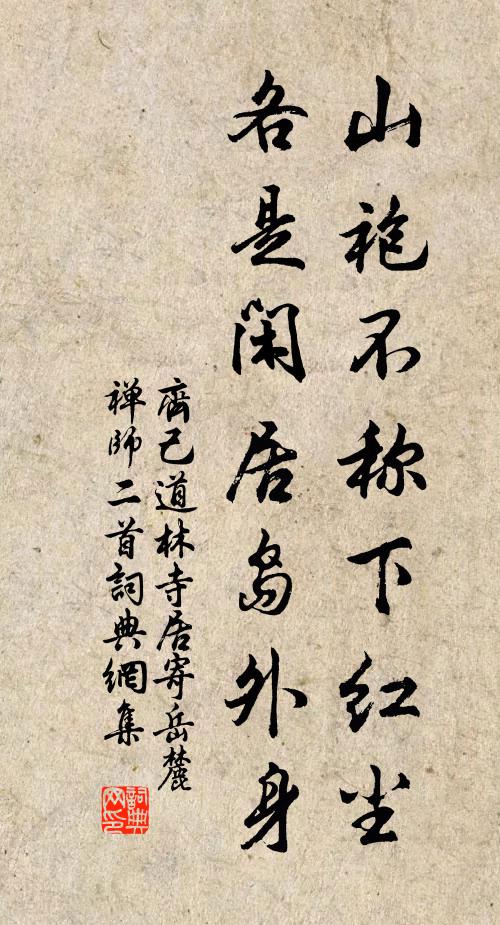 山袍不称下红尘
各是闲居岛外身
齊己道林寺居寄岳麓
禅師二首詞典網集
詞典网印